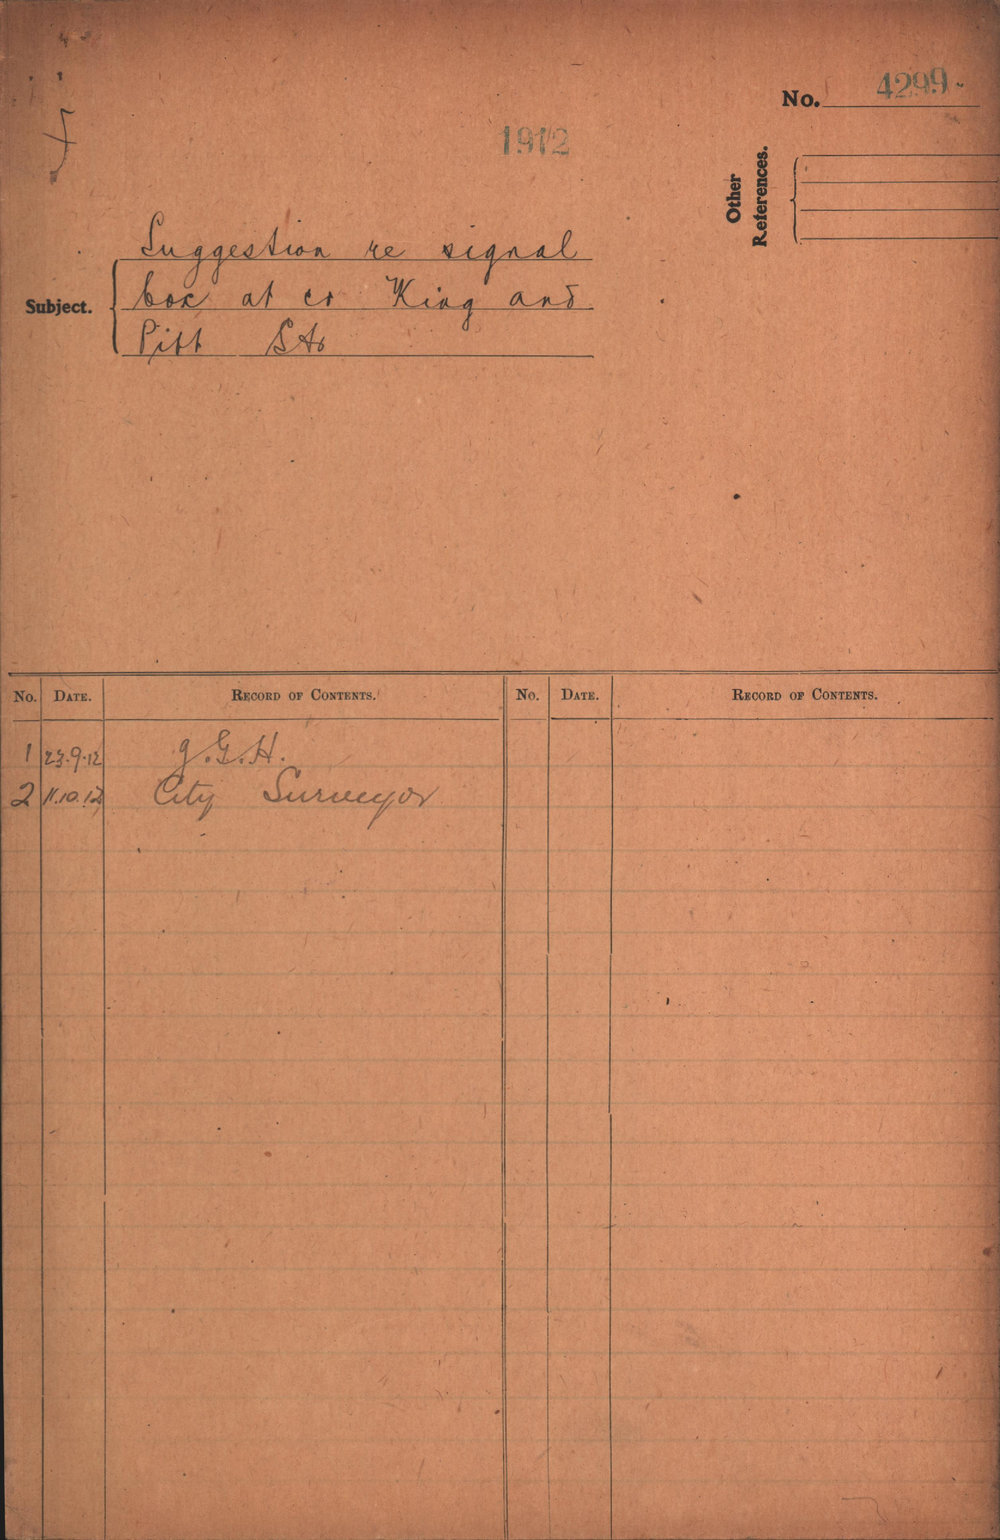 No. 4299
1912
Other
References.
Subject.
Suggestion re signal
box at cr King and
Pitt Sts
No. DATE. RECORD OF CONTENTS. No. DATE. RECORD OF CONTENTS.
1 23.9.12 J.G.H.
2 11.10.12 City Surveyor